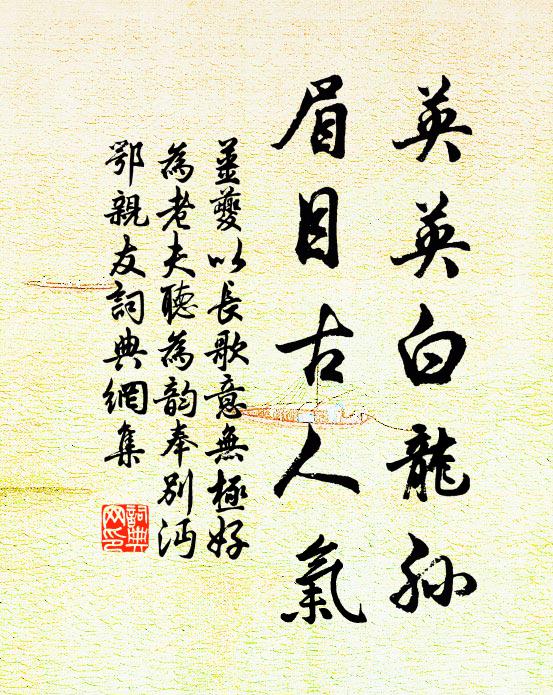 英英白龍孫
眉目古人氣
姜夔以長歌意無極好
為老夫聽為韵奉別沔
鄂親友詞典網集
詞典
网印